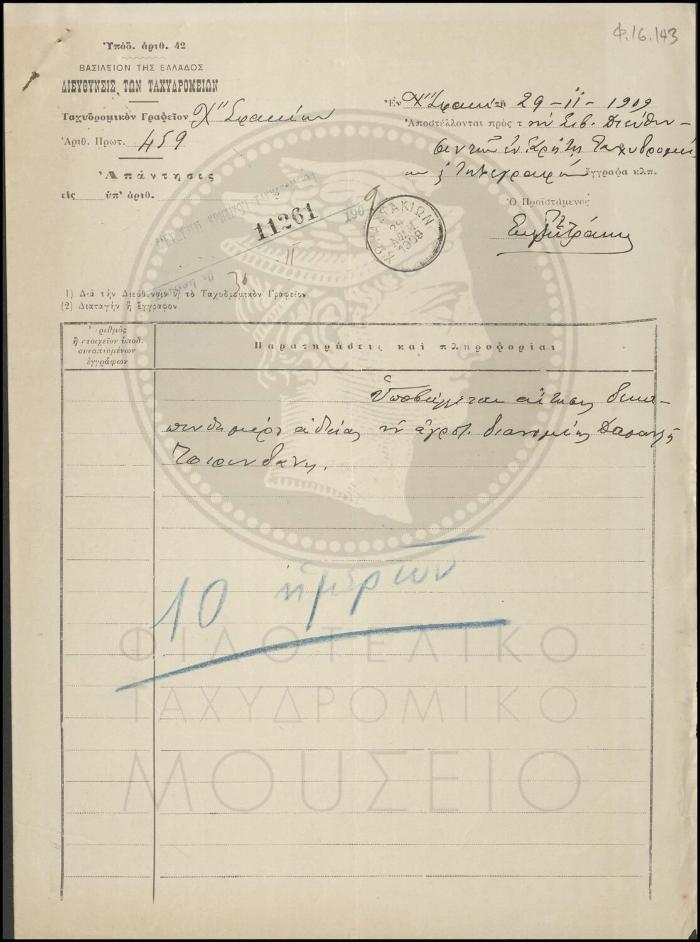 Φ.16.143
Ὑπόδ. ἀριθ. 42
ΒΑΣΙΛΕΙΟΝ ΤΗΣ ΕΛΛΑΔΟΣ
ΔΙΕΥΘΥΝΣΙΣ ΤΩΝ ΤΑΧΥΔΡΟΜΕΙΩΝ
Ταχυδρομικὸν Γραφεῖον Χ" Σφακίων
Ἀριθ. Πρωτ. 459
Ἀπάντησες
εἰς ὑπ' ἀριθ.
Ἐν Χ" Σφακίων 29-11-1909
Ἀποστέλλονται πρὸς τ ην Σεβ. Διεύθυν-
σιν των ἐν Κρήτῃ Ταχυδρομεί
ων ἔγγραφα κλπ.
Ὁ Προϊστάμενος
11261 1909
ΧΩΡΑ ΣΦΑΚΙΩΝ
1) Διὰ τὴν Διεύθυνσιν ἢ τὸ Ταχυδρομικὸν Γραφεῖον
(2) Διαταγὴν ἢ Ἔγγραφον
Ἀριθμὸς
ἢ στοιχεῖον ὑποδ.
συναπτομένων
ἐγγράφων
Παρατηρήσεις καὶ πληροφορίαι
Ὑποβάλλεται αἴτησις δεκα-
πενθημέρου ἀδείας τοῦ ἀγροτ. διανομέως
10 ἡμερῶν
ΦΙΛΟΤΕΛΙΚΟ
ΤΑΧΥΔΡΟΜΙΚΟ
ΜΟΥΣΕΙΟ